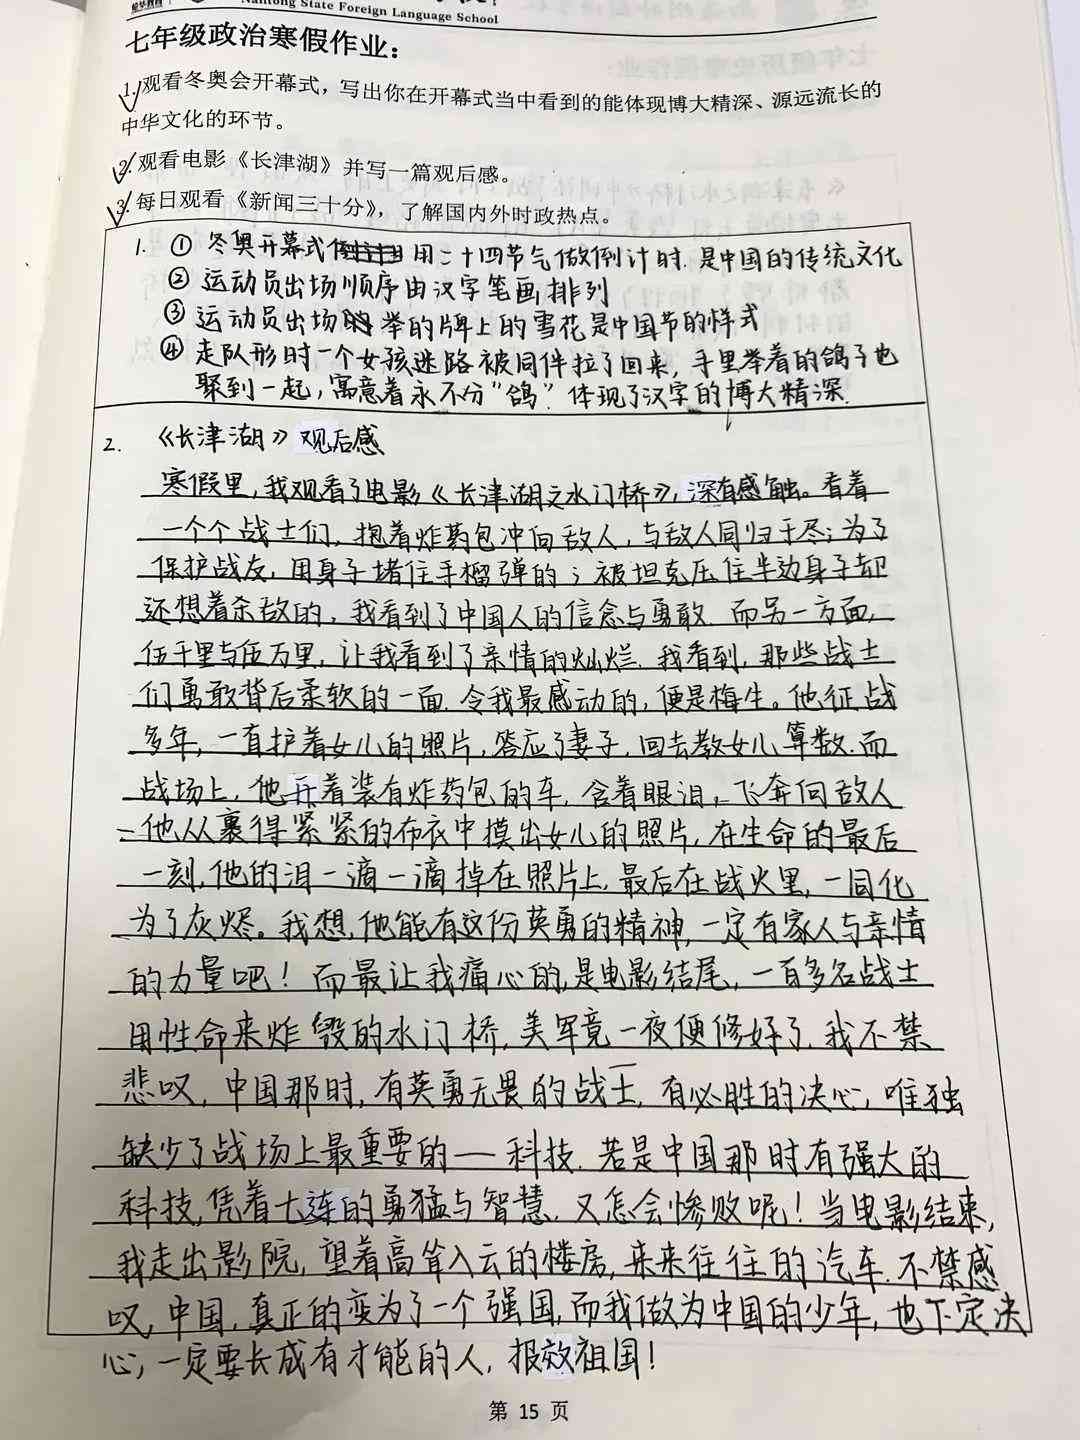 Nantong State Foreign Language School
七年级政治寒假作业：
1.观看冬奥会开幕式，写出你在开幕式当中看到的能体现博大精深、源远流长的
中华文化的环节。
2.观看电影《长津湖》并写一篇观后感。
3.每日观看《新闻三十分》，了解国内外时政热点。
1. ① 冬奥开幕式用二十四节气做倒计时.是中国的传统文化
② 运动员出场顺序由汉字笔画排列
③ 运动员出场举的牌上的雪花是中国节的样式
④ 走队形时一个女孩迷路被同伴拉了回来，手里举着的鸽子也
聚到一起，寓意着永不分“鸽”.体现了汉字的博大精深.
2. 《长津湖》观后感
寒假里，我观看了电影《长津湖之水门桥》，深有感触。看着
一个个战士们，抱着炸药包冲向敌人，与敌人同归于尽；为了
保护战友，用身子堵住手榴弹的；被坦克压住半边身子却
还想着杀敌的，我看到了中国人的信念与勇敢.而另一方面，
伍千里与伍万里，让我看到了亲情的灿烂.我看到，那些战士
们勇敢背后柔软的一面.令我最感动的，便是梅生。他征战
多年，一直护着女儿的照片，答应了妻子，回去教女儿算数.而
战场上，他开着装有炸药包的车，含着眼泪，飞奔向敌人
他从裹得紧紧的布衣中摸出女儿的照片，在生命的最后
一刻，他的泪一滴一滴掉在照片上，最后在战火里，一同化
为了灰烬。我想，他能有这份英勇的精神，一定有家人与亲情
的力量吧！而最让我痛心的，是电影结尾，一百多名战士
用性命来炸毁的水门桥，美军竟一夜便修好了.我不禁
悲叹，中国那时，有英勇无畏的战士，有必胜的决心，唯独
缺少了战场上最重要的——科技.若是中国那时有强大的
科技，凭着七连的勇猛与智慧.又怎会惨败呢！当电影结束，
我走出影院，望着高耸入云的楼房，来来往往的汽车.不禁感
叹，中国，真正的变为了一个强国，而我做为中国的少年，也下定决
心，一定要长成有才能的人，报效祖国！
第 15 页